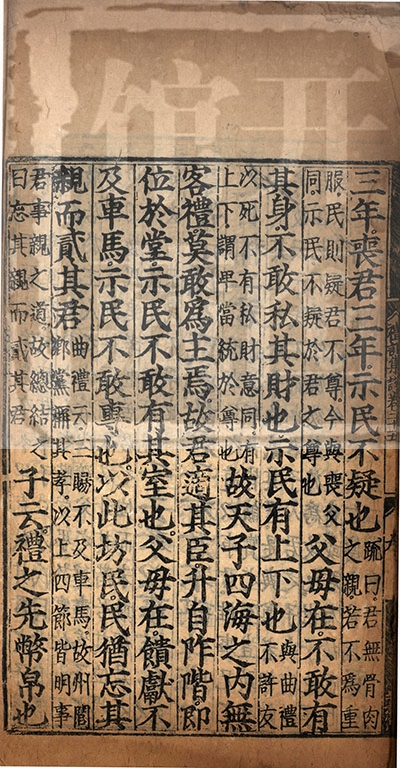 三年。喪君三年。示民不疑也疏曰。君無骨肉之親。若不爲重
服。民則疑君不尊。今與喪父同。示民不疑於君之尊也父母在。不敢有
其身。不敢私其財也。示民有上下也與曲禮不許友
以死不有私財意同。有上下。謂卑當統於尊也故天子四海之内無
客禮。莫敢爲主焉。故君適其臣。升自阼階。即
位於堂。示民不敢有其室也。父母在。饋獻不
及車馬。示民不敢專也。以此坊民。民猶忘其
親而貳其君曲禮云。三賜不及車馬。故州閭鄉黨稱其孝。以上四節皆明事
君事親之道。故總結之曰忘其親而貳其君子云。禮之先幣帛也